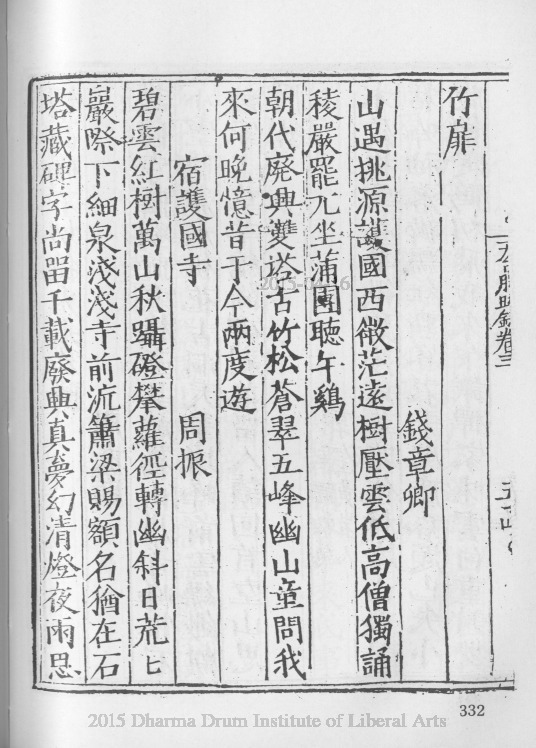 竹扉
錢章卿
山遇挑源護國西徼茫遠樹壓雲低高僧獨誦
稜嚴罷兀坐蒲團聽午鷄
朝代廢興雙塔古竹松蒼翠五峰幽山童問我
來何晚憶昔于今兩度遊
宿護國寺
周振
碧雲紅樹萬山秋躡磴攀蘿徑轉幽斜日荒
巖際下細泉淺淺寺前流簫梁賜額名猶在石
塔藏碑字尚畱千載廢興真夢幻清燈夜雨思
332
2015 Dharma Drum Institute of Liberal Arts